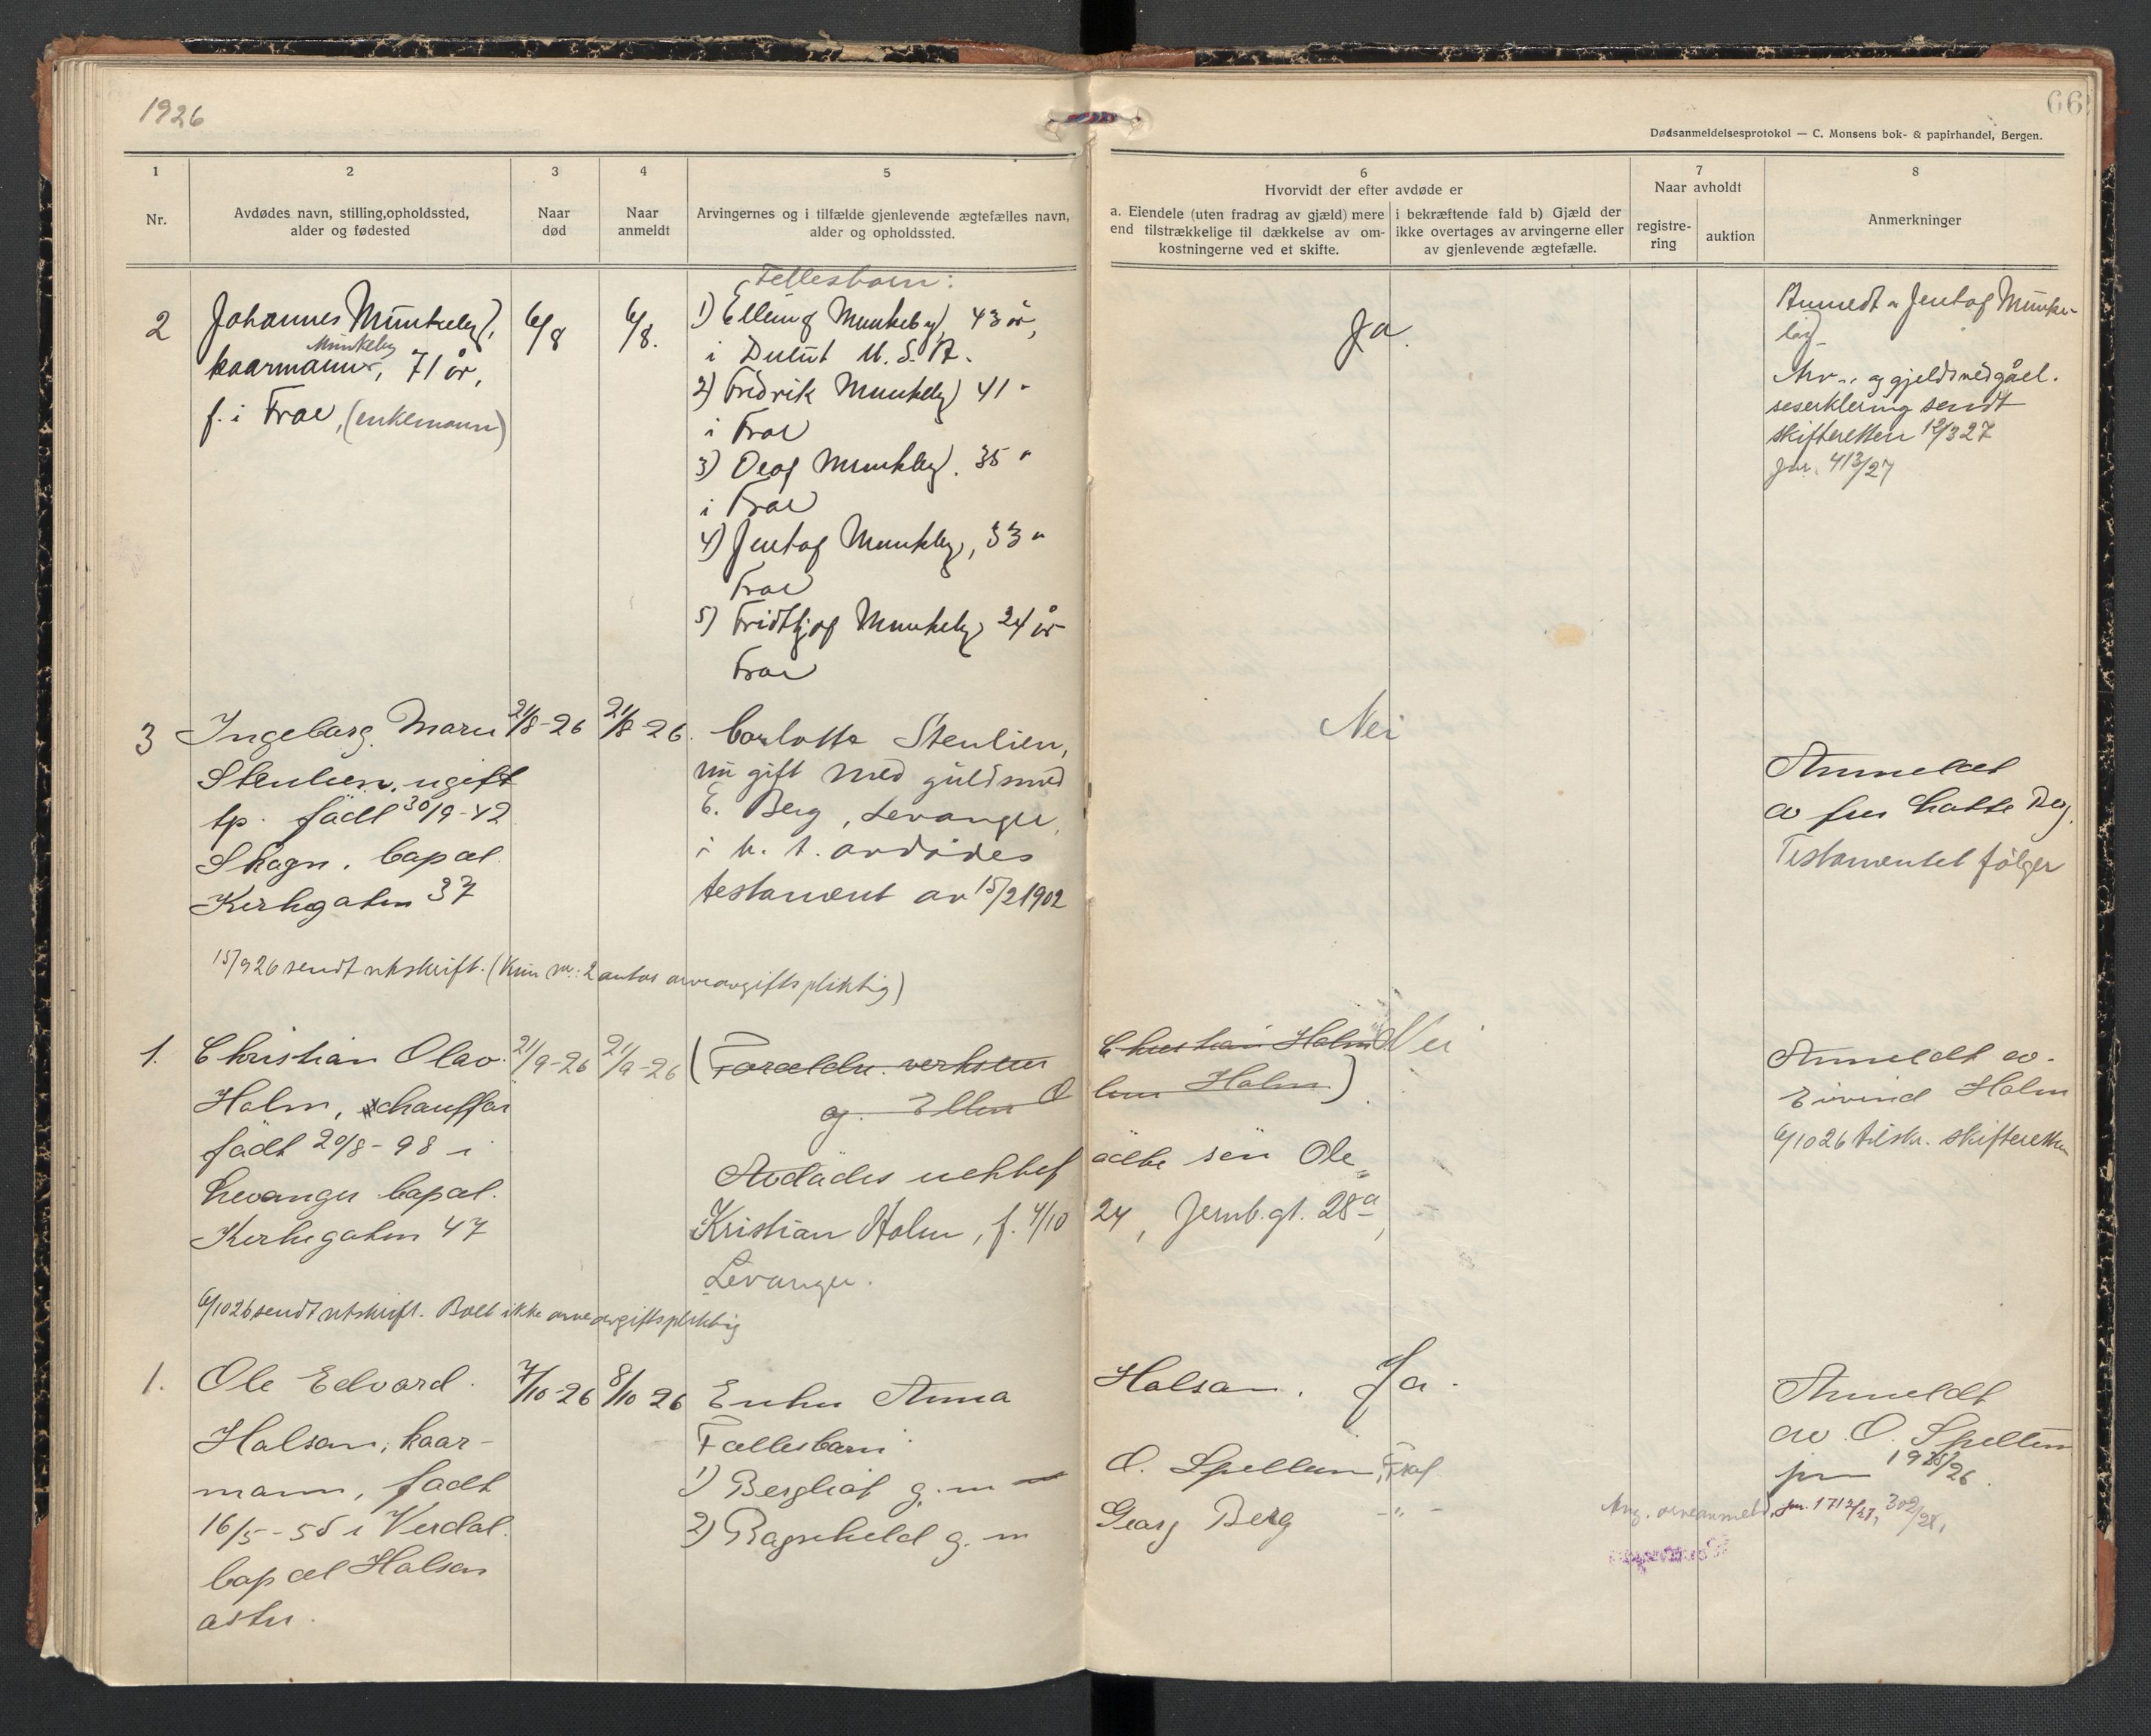 1926
66
Dødsanmeldelsesprotokol — C. Monsens bok- & papirhandel, Bergen.
1
2
3
4
5
6
7
8
Nr.
Avdødes navn, stilling, opholdssted,
alder og fødested
Naar
død
Naar
anmeldt
Arvingernes og i tilfælde gjenlevende ægtefælles navn,
alder og opholdssted.
Hvorvidt der efter avdøde er
a. Eiendele (uten fradrag av gjæld) mere
end tilstrækkelige til dækkelse av om-
kostningerne ved et skifte.
i bekræftende fald b) Gjæld der
ikke overtages av arvingerne eller
av gjenlevende ægtefælle.
Naar avholdt
registre-
ring
auktion
Anmerkninger
2
Johannes Munkeby,
Munkeby
kaarmann, 71 år,
f. i Frol, (enkemann)
6/8
6/8.
Fellesbarn:
1) Elling Munkeby, 43 år,
i Dulut U.S.A.
2) Fridrik Munkeby 41 "
i Frol
3) Olaf Munkeby. 35 "
i Frol
4) Jentof Munkeby, 33 "
Frol
5) Fridtjof Munkeby 24 år
Frol
Ja.
Anmeldt a Jentof Munke-
by
Arv- og gjeldsvedgåel-
seserklering sendt
skifteretten 12/3 27
jnr. 413/27
3
Ingeborg Marie
Stenlien, ugift
født 30/9-42
Skogn. Bopæl
Kirkegaten 37
21/8-26
21/8-26.
Carlotte Stenlien,
nu gift med guldsmed
E. Berg, Levanger,
i h. t. avdødes
testament av 15/2 1902
Nei
Anmeldt
av fru Lotte Berg.
Testamentet følger
15/9 26 sendt utskrift. (Kun nr: 2 antas arveavgiftspliktig)
1.
Christian Olav
Holm, chauffør
født 20/8-98 i
Levanger bopæl.
Kirkegaten 47
21/9-26
21/9-26
(Forældre. verkseier Christian Holm
og Ellen O Holm)
Avdødes uekte født søn Ole
Kristian Holm, f. 4/10 24, Jernb.gt. 28a,
Levanger.
Nei
Anmeldt av
Eivind Holm
6/10 26 tilskr. skifteretten
6/10 26 sendt utskrift. Boet ikke arveavgiftspliktig
1.
Ole Edvard
Halsan, kaar-
mann, født
16/5-55 i Verdal.
bopæl Halsan
østre.
7/10-26
8/10 26
Enke Anna Halsan.
Fællesbarn:
1) Bergliot g. m O. Spellum, Frol
2) Ragnhild g. m Georg Berg -"-
Ja.
Anmeldt
av O. Spellum